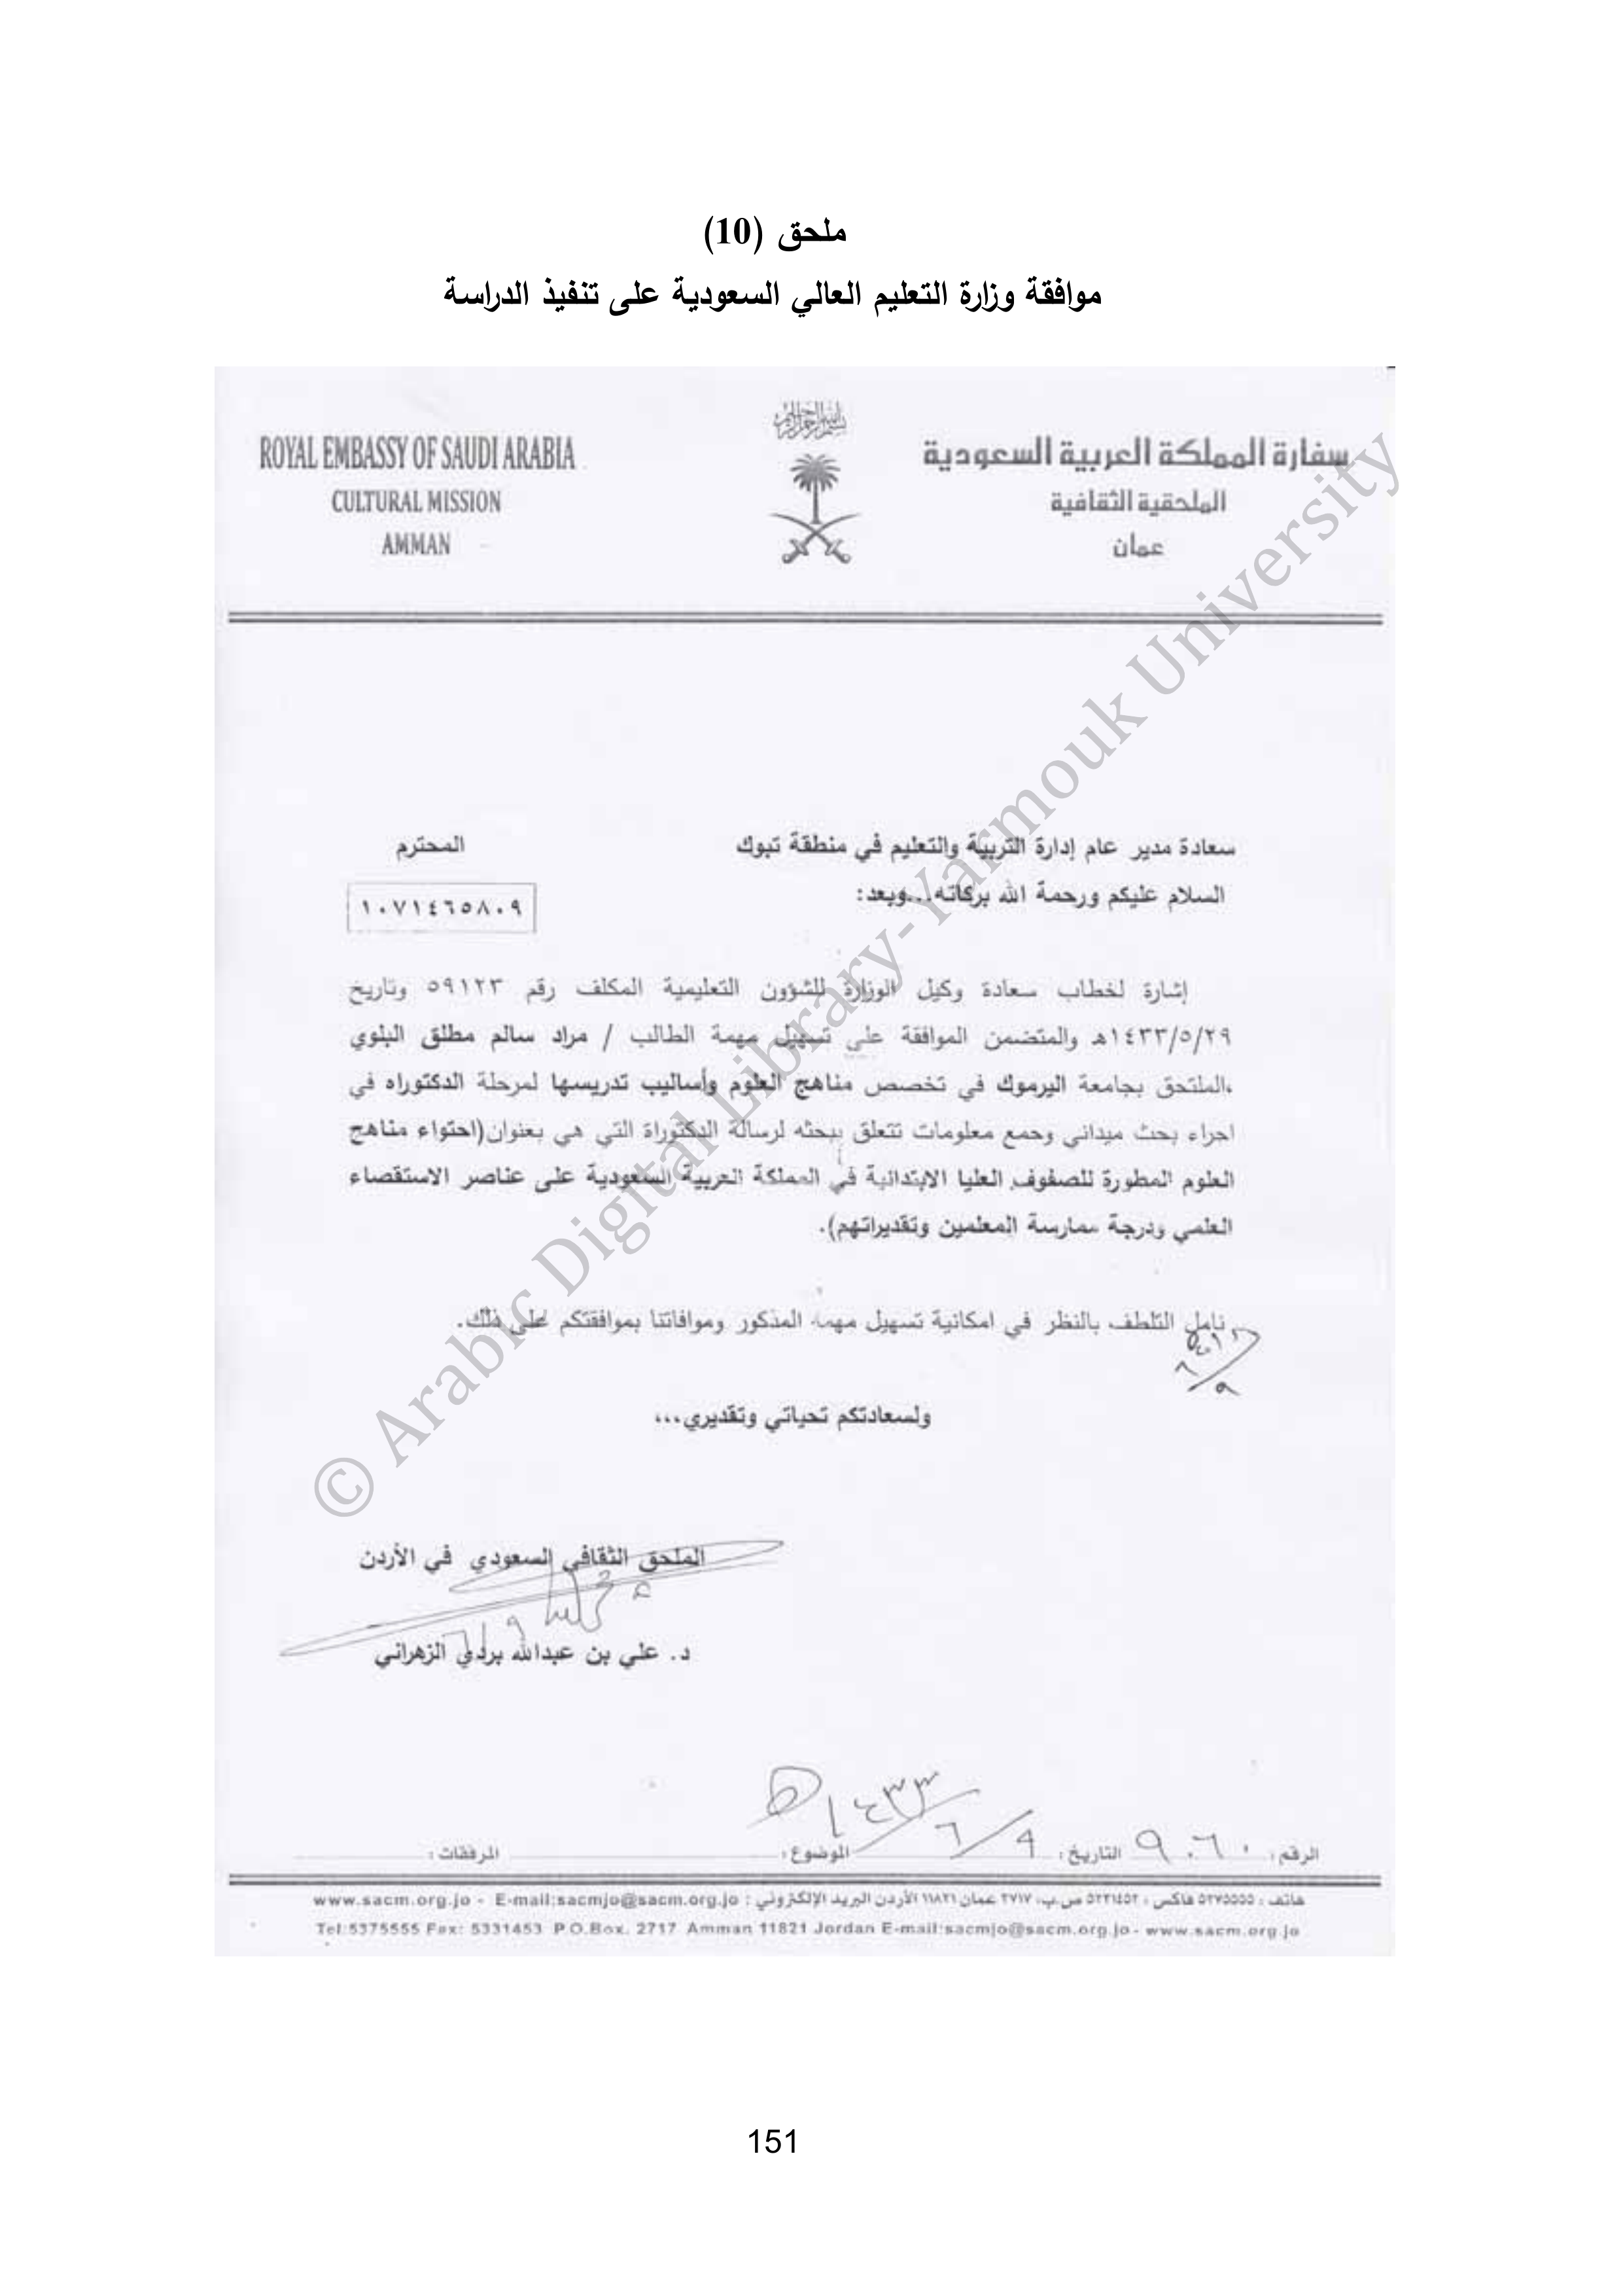 ملحق (10)
موافقة وزارة التعليم العالي السعودية على تنفيذ الدراسة
بسم الله الرحمن الرحيم
ROYAL EMBASSY OF SAUDI ARABIA
سفارة المملكة العربية السعودية
CULTURAL MISSION
الملحقية الثقافية
AMMAN
عمان
سعادة مدير عام إدارة التربية والتعليم في منطقة تبوك المحترم
السلام عليكم ورحمة الله بركاته...وبعد:
١٠٧١٤٦٥٨٠٩
إشارة لخطاب سعادة وكيل الوزارة للشؤون التعليمية المكلف رقم ٥٩١٢٣ وتاريخ
١٤٣٣/٥/٢٩هـ والمتضمن الموافقة على تسهيل مهمة الطالب / مراد سالم مطلق البلوي
،الملتحق بجامعة اليرموك في تخصص مناهج العلوم وأساليب تدريسها لمرحلة الدكتوراه في
اجراء بحث ميداني وجمع معلومات تتعلق ببحثه لرسالة الدكتوراة التي هي بعنوان(احتواء مناهج
العلوم المطورة للصفوف العليا الابتدائية في المملكة العربية السعودية على عناصر الاستقصاء
العلمي ودرجة ممارسة المعلمين وتقديراتهم).
نامل التلطف بالنظر في امكانية تسهيل مهمة المذكور وموافاتنا بموافقتكم على ذلك.
ولسعادتكم تحياتي وتقديري،،،
الملحق الثقافي السعودي في الأردن
د. علي بن عبدالله بردي الزهراني
الرقم: ٩٠٦٠ التاريخ: ٩/٦/١٤٣٣هـ الموضوع: المرفقات:
هاتف: ٥٣٧٥٥٥٥ فاكس: ٥٣٣١٤٥٣ ص.ب. ٢٧١٧ عمان ١١٨٢١ الأردن البريد الإلكتروني: www.sacm.org.jo - E-mail:sacmjo@sacm.org.jo
Tel:5375555 Fax: 5331453 P.O.Box. 2717 Amman 11821 Jordan E-mail:sacmjo@sacm.org.jo - www.sacm.org.jo
© Arabic Digital Library-Yarmouk University
151